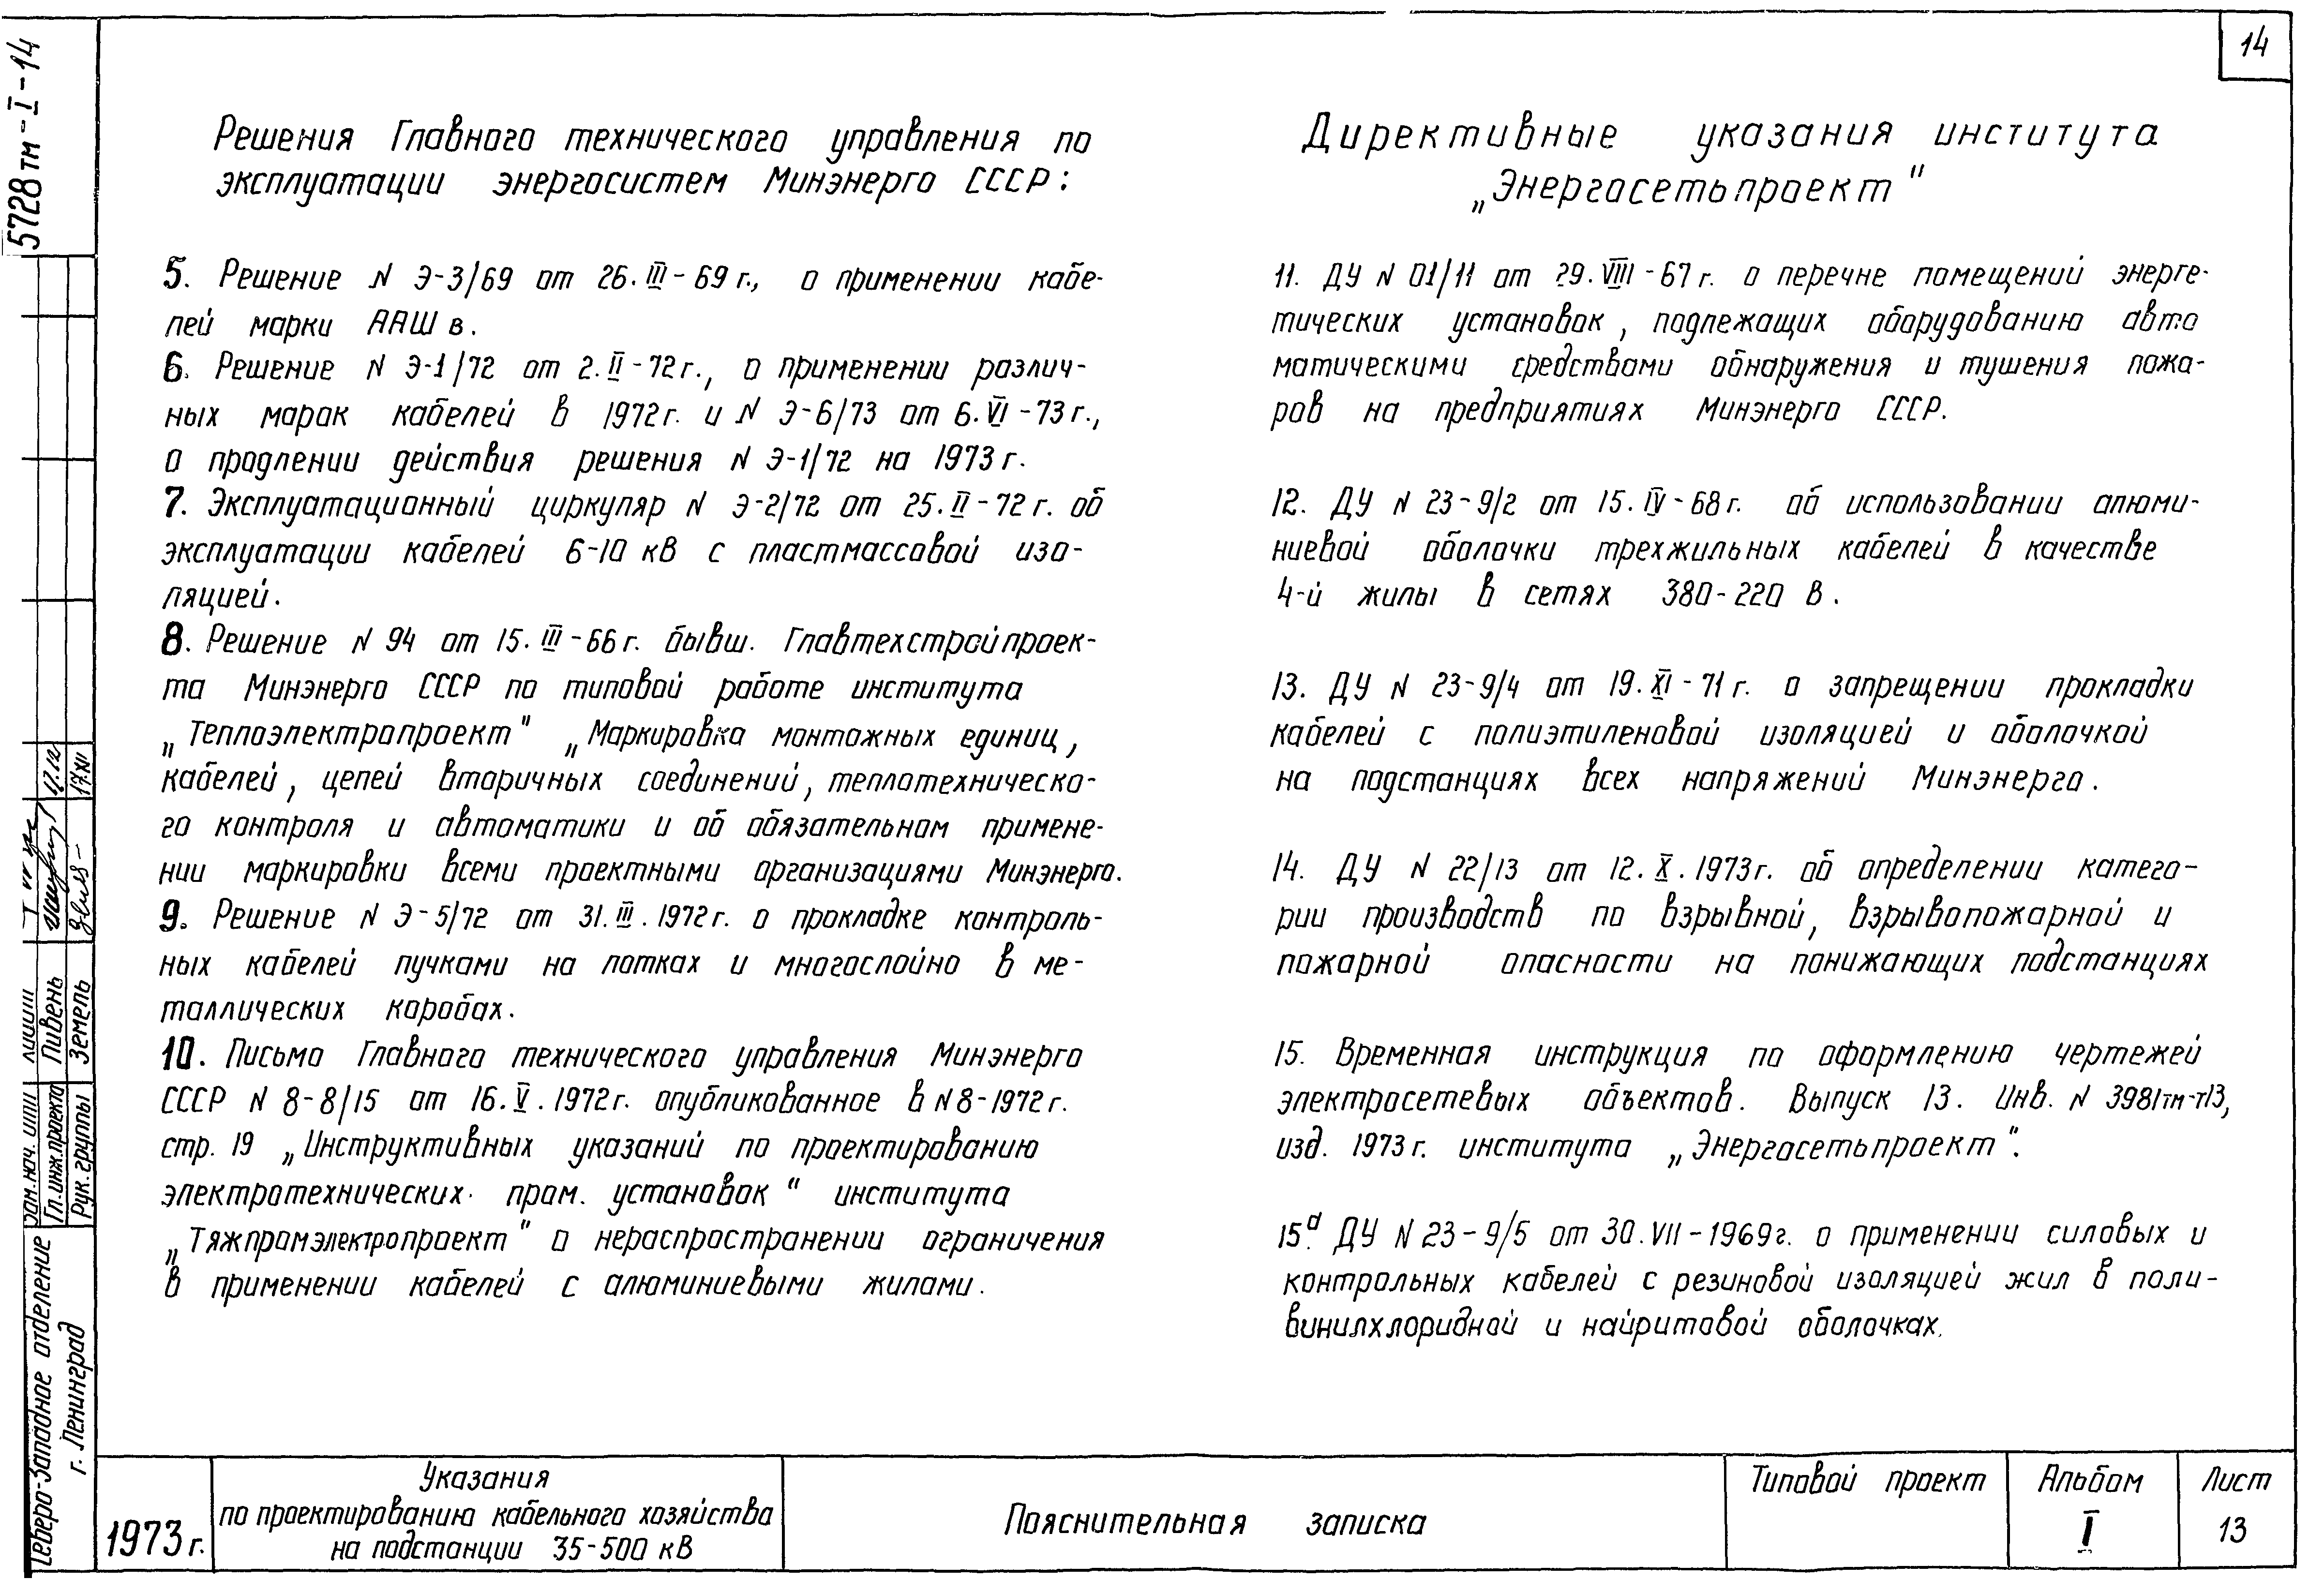 14
5728тм-I-14
Решения Главного технического управления по
эксплуатации энергосистем Минэнерго СССР:
5. Решение N Э-3/69 от 26.III-69г., о применении кабе-
лей марки ААШв.
6. Решение N Э-1/72 от 2.II-72г., о применении различ-
ных марок кабелей в 1972г. и N Э-6/73 от 6.VI-73г.,
о продлении действия решения N Э-1/72 на 1973г.
7. Эксплуатационный циркуляр N Э-2/72 от 25.II-72г. об
эксплуатации кабелей 6-10 кВ с пластмассовой изо-
ляцией.
8. Решение N 94 от 15.III-66г. бывш. Главтехстройпроек-
та Минэнерго СССР по типовой работе института
„Теплоэлектропроект" „Маркировка монтажных единиц,
кабелей, цепей вторичных соединений, теплотехническо-
го контроля и автоматики и об обязательном примене-
нии маркировки всеми проектными организациями Минэнерго.
9. Решение N Э-5/72 от 31.III.1972г. о прокладке контроль-
ных кабелей пучками на лотках и многослойно в ме-
таллических коробах.
10. Письмо Главного технического управления Минэнерго
СССР N 8-8/15 от 16.V.1972г. опубликованное в N8-1972г.
стр. 19 „Инструктивных указаний по проектированию
электротехнических пром. установок" института
„Тяжпромэлектропроект" о нераспространении ограничения
в применении кабелей с алюминиевыми жилами.
Директивные указания института
„Энергосетьпроект"
11. ДУ N 01/11 от 29.VIII-67г. о перечне помещений энерге-
тических установок, подлежащих оборудованию авто
матическими средствами обнаружения и тушения пожа-
ров на предприятиях Минэнерго СССР.
12. ДУ N 23-9/2 от 15.IV-68г. об использовании алюми-
ниевой оболочки трехжильных кабелей в качестве
4-й жилы в сетях 380-220 В.
13. ДУ N 23-9/4 от 19.XI-71г. о запрещении прокладки
кабелей с полиэтиленовой изоляцией и оболочкой
на подстанциях всех напряжений Минэнерго.
14. ДУ N 22/13 от 12.X.1973г. об определении катего-
рии производств по взрывной, взрывопожарной и
пожарной опасности на понижающих подстанциях
15. Временная инструкция по оформлению чертежей
электросетевых объектов. Выпуск 13. Инв. N 3981тм-т13,
изд. 1973г. института „Энергосетьпроект".
15а. ДУ N 23-9/5 от 30.VII-1969г. о применении силовых и
контрольных кабелей с резиновой изоляцией жил в поли-
винилхлоридной и найритовой оболочках.
Гл.инж.проекта Пивень 17.12
Рук.группы Земель 17.XII
Северо-Западное отделение
г. Ленинград
1973г.
Указания
по проектированию кабельного хозяйства
на подстанции 35-500 кВ
Пояснительная записка
Типовой проект
Альбом
I
Лист
13